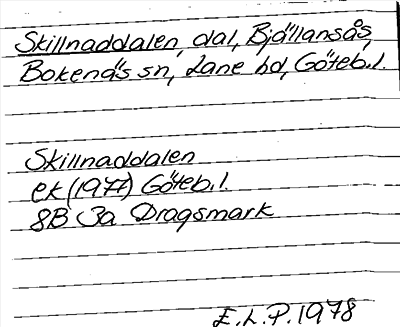 Skillnaddalen, dal, Bjällansås,
Bokenäs sn, Lane hd, Göteb.l.
Skillnaddalen
ek (1977) Göteb.l.
8B 3a Dragsmark
E.L.P. 1978